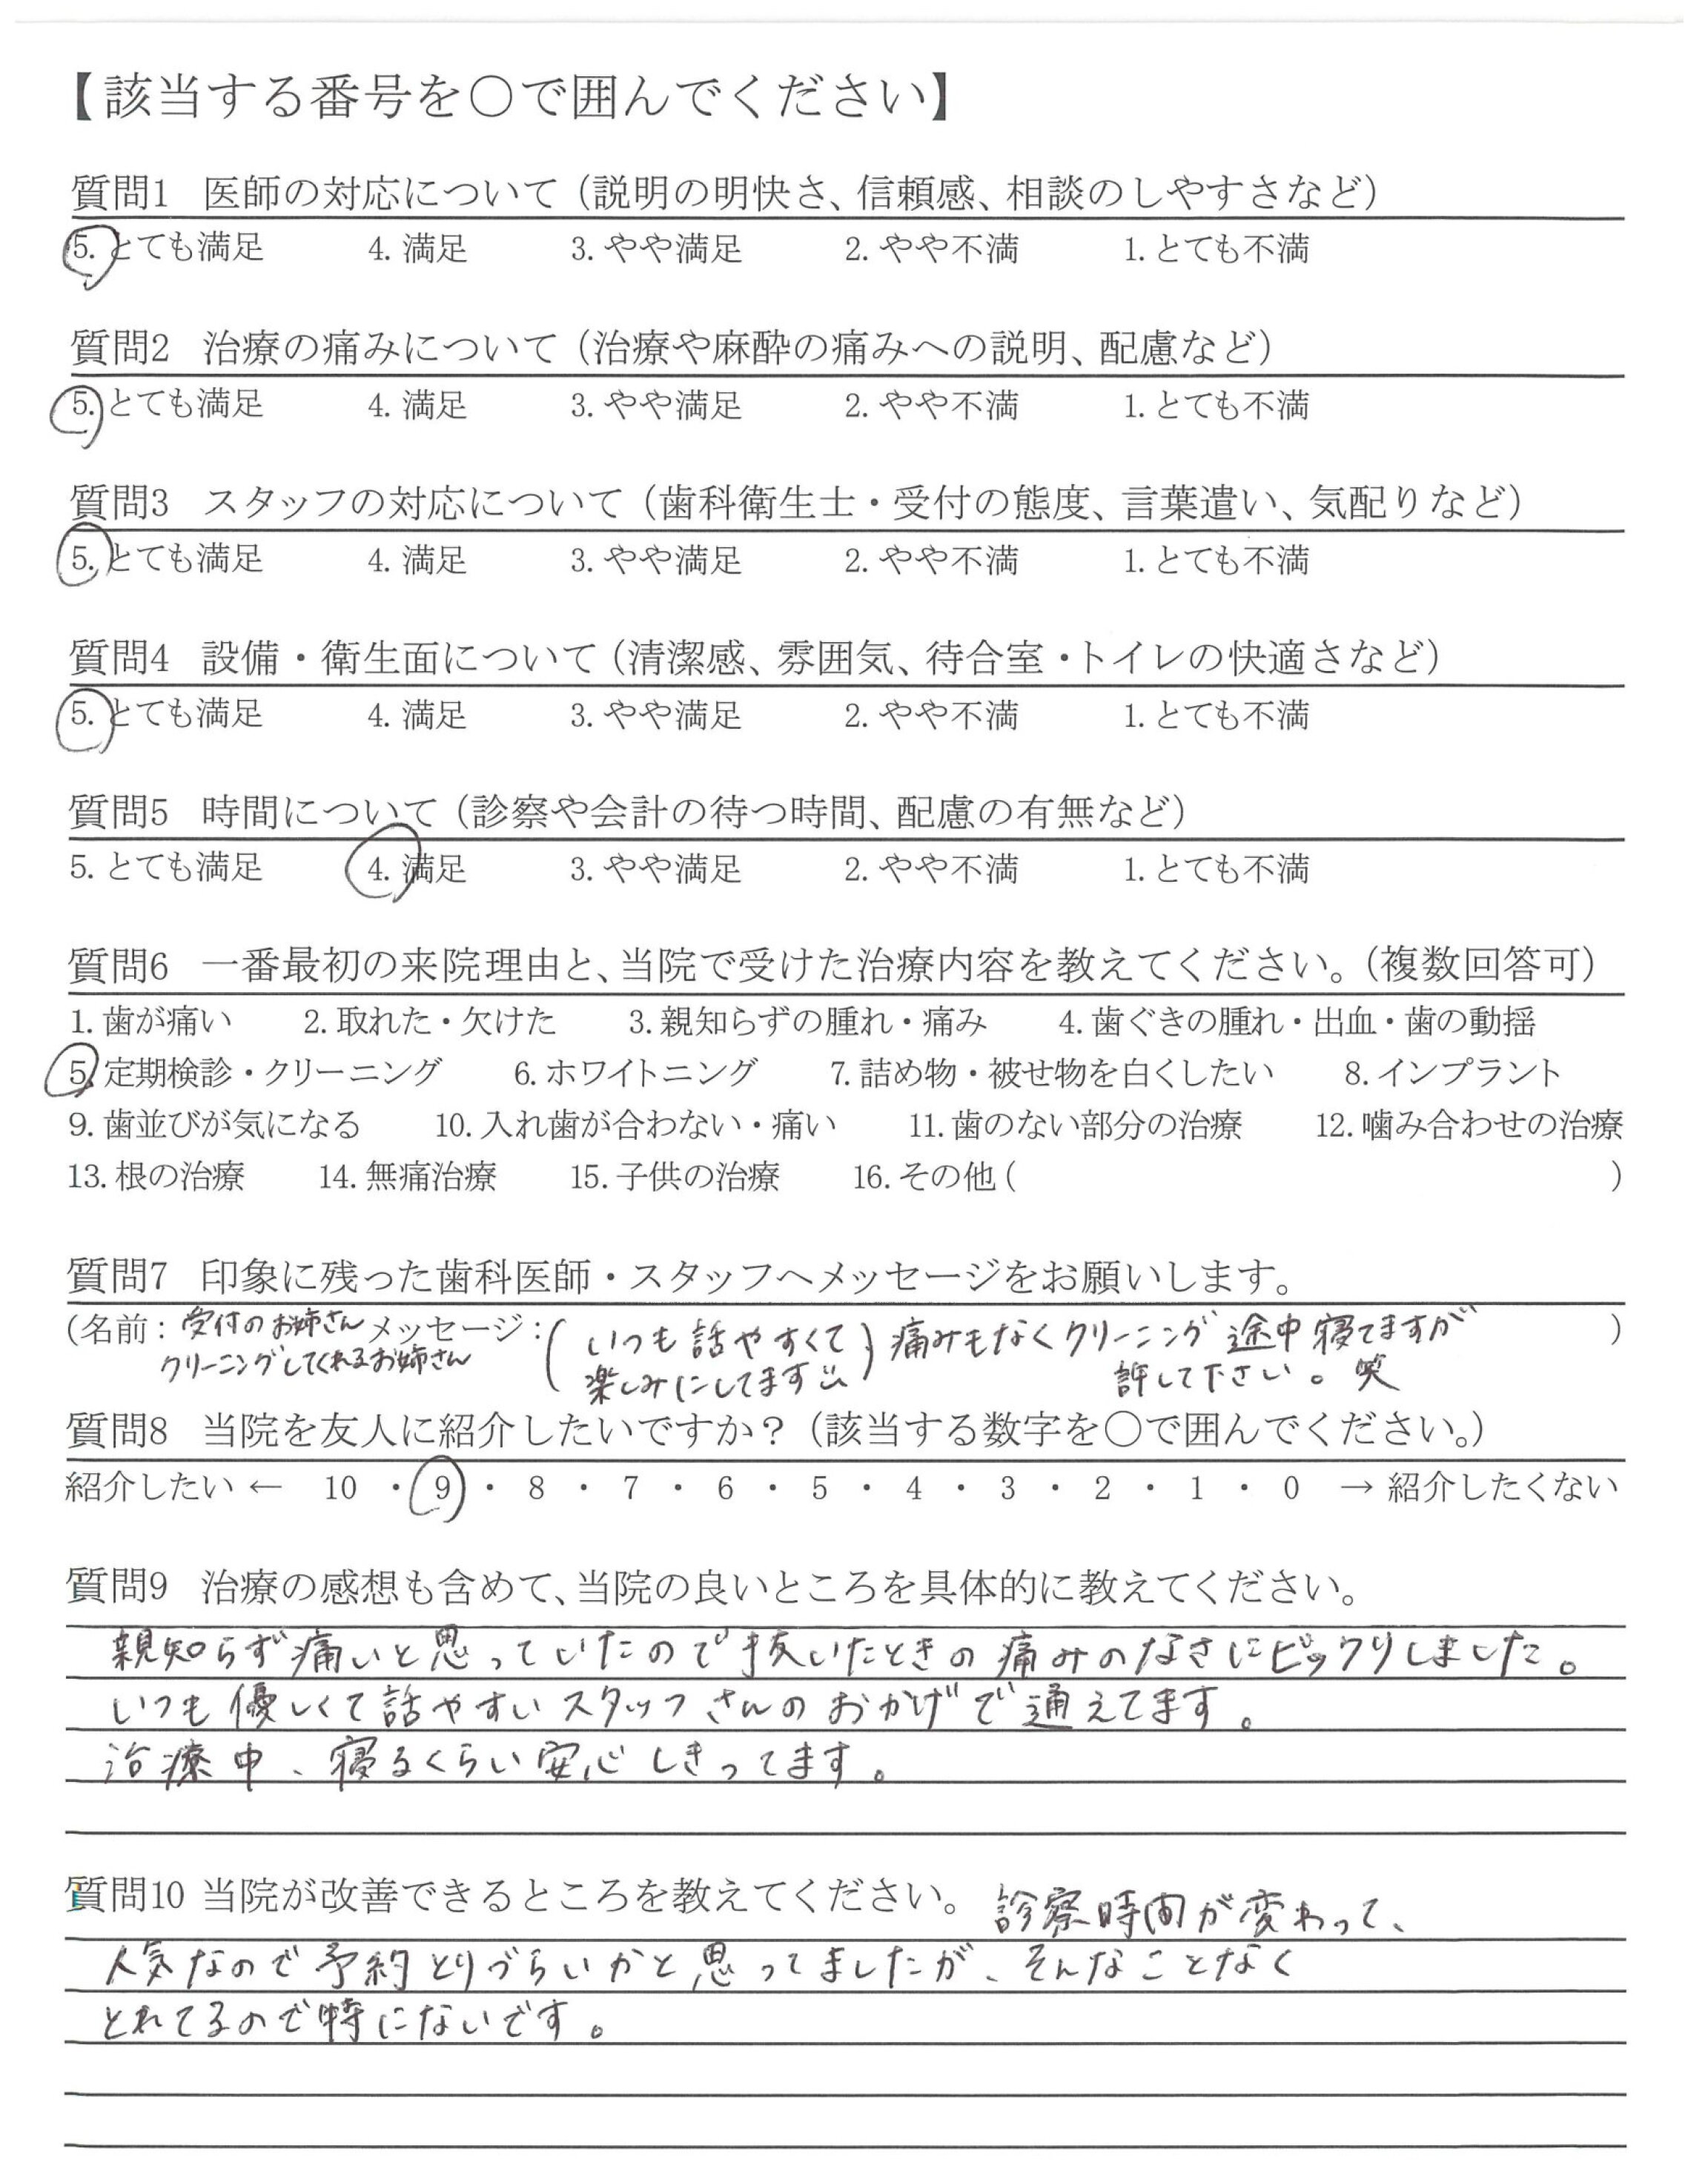 【該当する番号を〇で囲んでください】
質問1 医師の対応について（説明の明快さ、信頼感、相談のしやすさなど）
5. とても満足 4. 満足 3. やや満足 2. やや不満 1. とても不満
質問2 治療の痛みについて（治療や麻酔の痛みへの説明、配慮など）
5. とても満足 4. 満足 3. やや満足 2. やや不満 1. とても不満
質問3 スタッフの対応について（歯科衛生士・受付の態度、言葉遣い、気配りなど）
5. とても満足 4. 満足 3. やや満足 2. やや不満 1. とても不満
質問4 設備・衛生面について（清潔感、雰囲気、待合室・トイレの快適さなど）
5. とても満足 4. 満足 3. やや満足 2. やや不満 1. とても不満
質問5 時間について（診察や会計の待つ時間、配慮の有無など）
5. とても満足 4. 満足 3. やや満足 2. やや不満 1. とても不満
質問6 一番最初の来院理由と、当院で受けた治療内容を教えてください。（複数回答可）
1. 歯が痛い 2. 取れた・欠けた 3. 親知らずの腫れ・痛み 4. 歯ぐきの腫れ・出血・歯の動揺
5. 定期検診・クリーニング 6. ホワイトニング 7. 詰め物・被せ物を白くしたい 8. インプラント
9. 歯並びが気になる 10. 入れ歯が合わない・痛い 11. 歯のない部分の治療 12. 噛み合わせの治療
13. 根の治療 14. 無痛治療 15. 子供の治療 16. その他（ ）
質問7 印象に残った歯科医師・スタッフへメッセージをお願いします。
（名前：受付のお姉さん メッセージ：（いつも話やすくて）痛みもなくクリーニング途中寝てますが ）
クリーニングしてくれるお姉さん 楽しみにしてます 許して下さい。笑
質問8 当院を友人に紹介したいですか？（該当する数字を〇で囲んでください。）
紹介したい ← 10 ・ 9 ・ 8 ・ 7 ・ 6 ・ 5 ・ 4 ・ 3 ・ 2 ・ 1 ・ 0 → 紹介したくない
質問9 治療の感想も含めて、当院の良いところを具体的に教えてください。
親知らず痛いと思っていたので抜いたときの痛みのなさにビックリしました。
いつも優しくて話やすいスタッフさんのおかげで通えてます。
治療中、寝るくらい安心しきってます。
質問10 当院が改善できるところを教えてください。 診察時間が変わって、
人気なので予約とりづらいかと思ってましたが、そんなことなく
とれてるので特にないです。